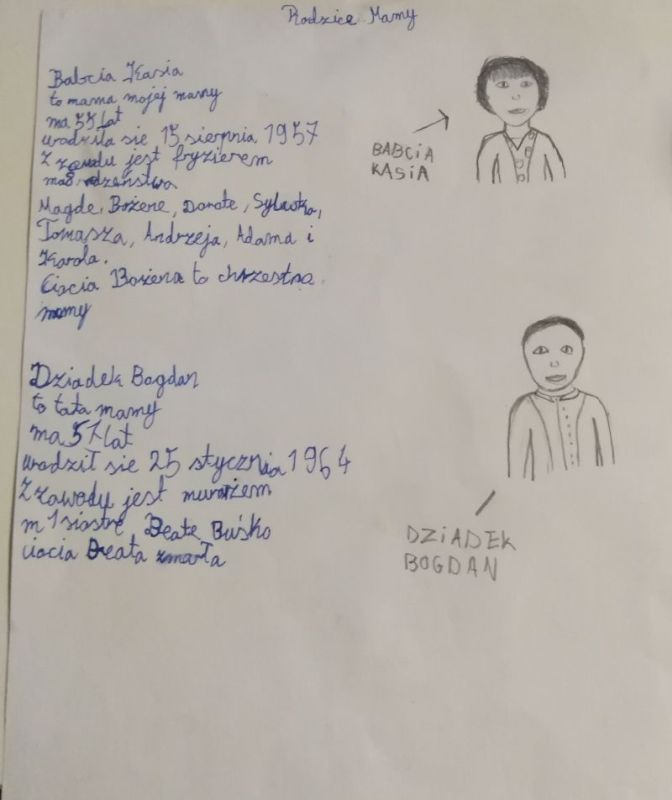 Rodzice Mamy
Babcia Kasia
to mama mojej mamy
ma 55 lat
urodziła sie 15 sierpnia 1957
Z zawodu jest fryzierem
ma 8 rodzeństwa
Magde, Bożene, Dorote, Sylwka,
Tomasza, Andrzeja, Adama i
Karola.
Ciocia Bożena to chrzestna
mamy
BABCIA
KASIA
Dziadek Bogdan
to tata mamy
ma 57 lat
urodził sie 25 stycznia 1964
Z zawody jest murarzem
m 1 siostrę Beate Buśko
ciocia Beata zmarła
DZIADEK
BOGDAN